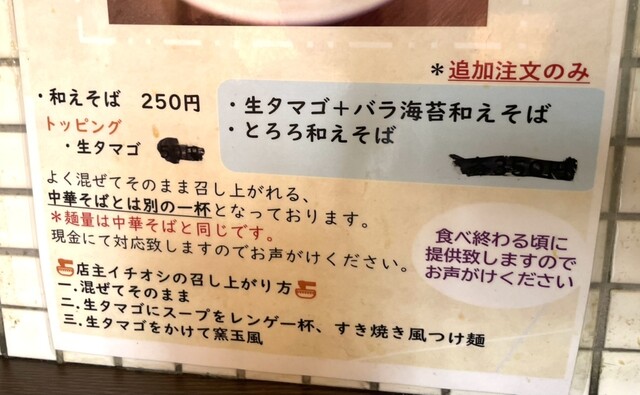 ＊追加注文のみ
・和えそば 250円
トッピング
・生タマゴ
・生タマゴ＋バラ海苔和えそば
・とろろ和えそば
よく混ぜてそのまま召し上がれる、
中華そばとは別の一杯となっております。
＊麺量は中華そばと同じです。
現金にて対応致しますのでお声がけください。
食べ終わる頃に
提供致しますので
お声がけください
店主イチオシの召し上がり方
一.混ぜてそのまま
二.生タマゴにスープをレンゲ一杯、すき焼き風つけ麺
三.生タマゴをかけて窯玉風